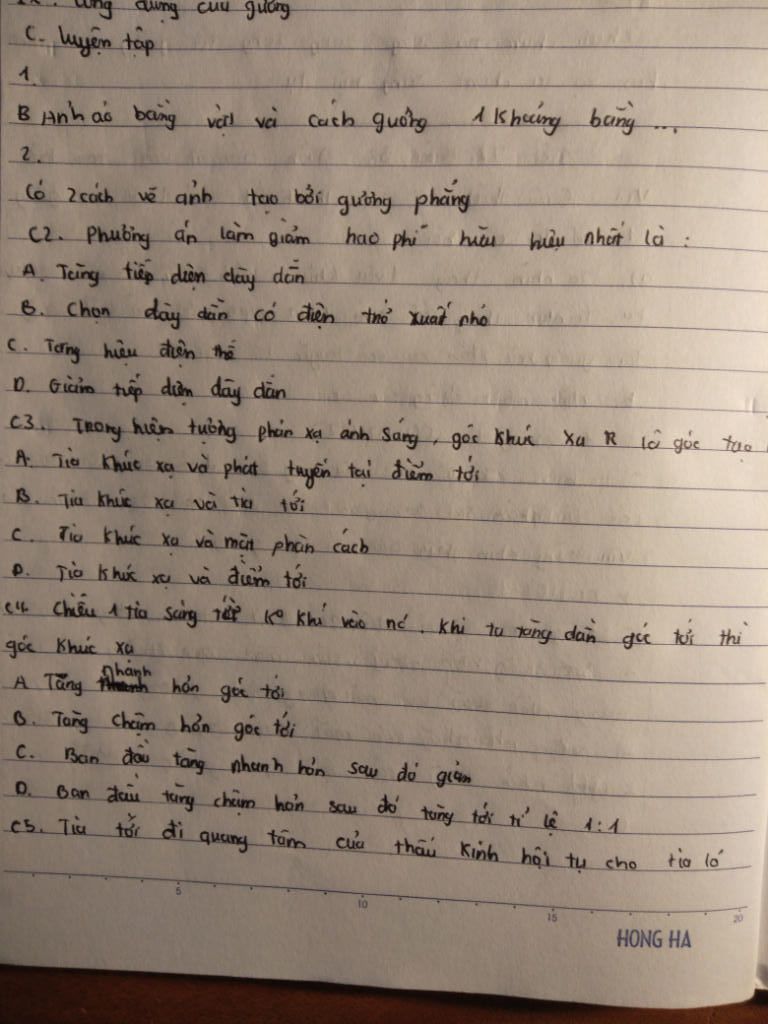 ứng dụng của gương
C. luyện tập
1.
B Ảnh ảo bằng vật và cách gương 1 khoảng bằng ...
2.
Có 2 cách vẽ ảnh tạo bởi gương phẳng
C2. Phương án làm giảm hao phí hữu hiệu nhất là :
A. Tăng tiếp diện dây dẫn
B. Chọn dây dẫn có điện trở xuất nhỏ
C. Tăng hiệu điện thế
D. Giảm tiếp diện dây dẫn
C3. Trong hiện tượng phản xạ ánh sáng, góc khúc xạ R là góc tạo
A. Tia khúc xạ và phát tuyến tại điểm tới
B. Tia khúc xạ và tia tới
C. Tia khúc xạ và mặt phân cách
D. Tia khúc xạ và điểm tới
C4. Chiếu 1 tia sáng từ ko khí vào nc. Khi ta tăng dần góc tới thì
góc khúc xạ
A Tăng nhanh hơn góc tới
B. Tăng chậm hơn góc tới
C. Ban đầu tăng nhanh hơn sau đó giảm
D. Ban đầu tăng chậm hơn sau đó tăng tới tỉ lệ 1:1
C5. Tia tới đi quang tâm của thấu kính hội tụ cho tia ló
5 10 15 20
HONG HA